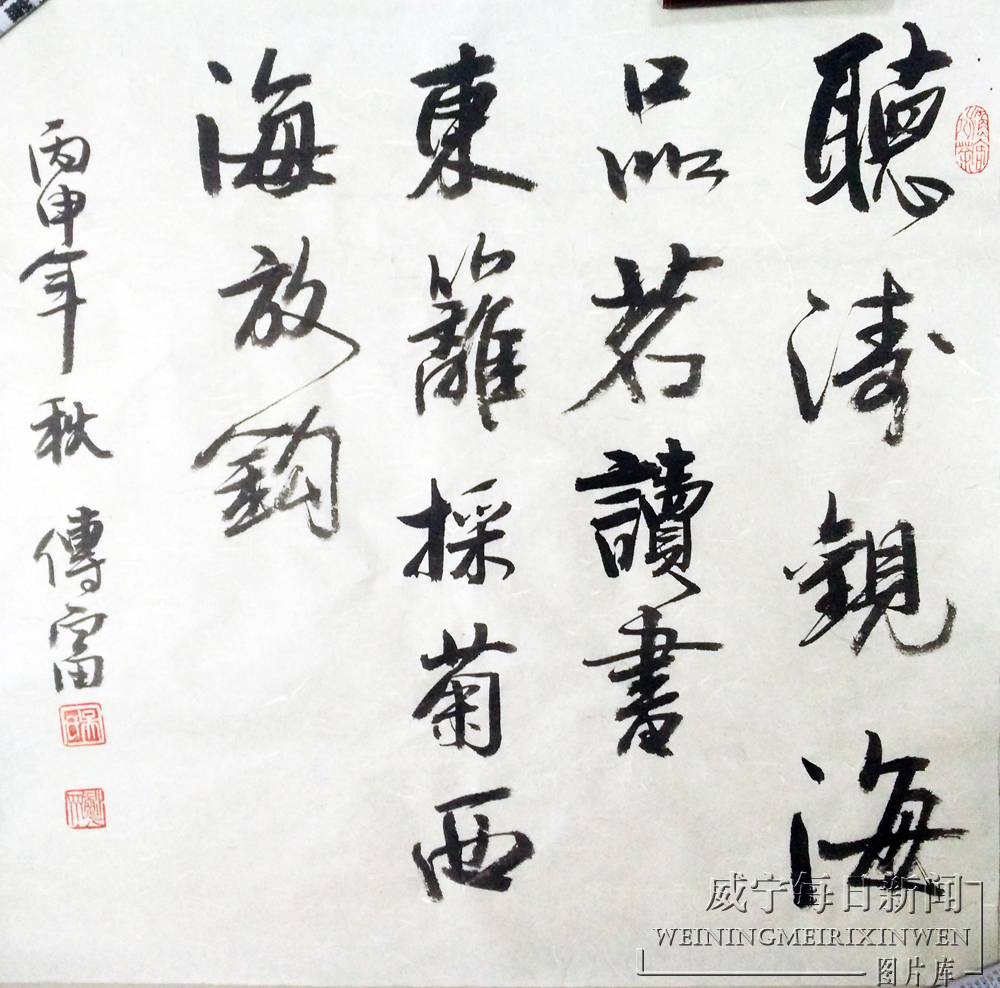 聽濤觀海
品茗讀書
東籬採菊西
海放鈎
丙申年秋 傳富
威宁每日新闻
WEININGMEIRIXINWEN
图片库